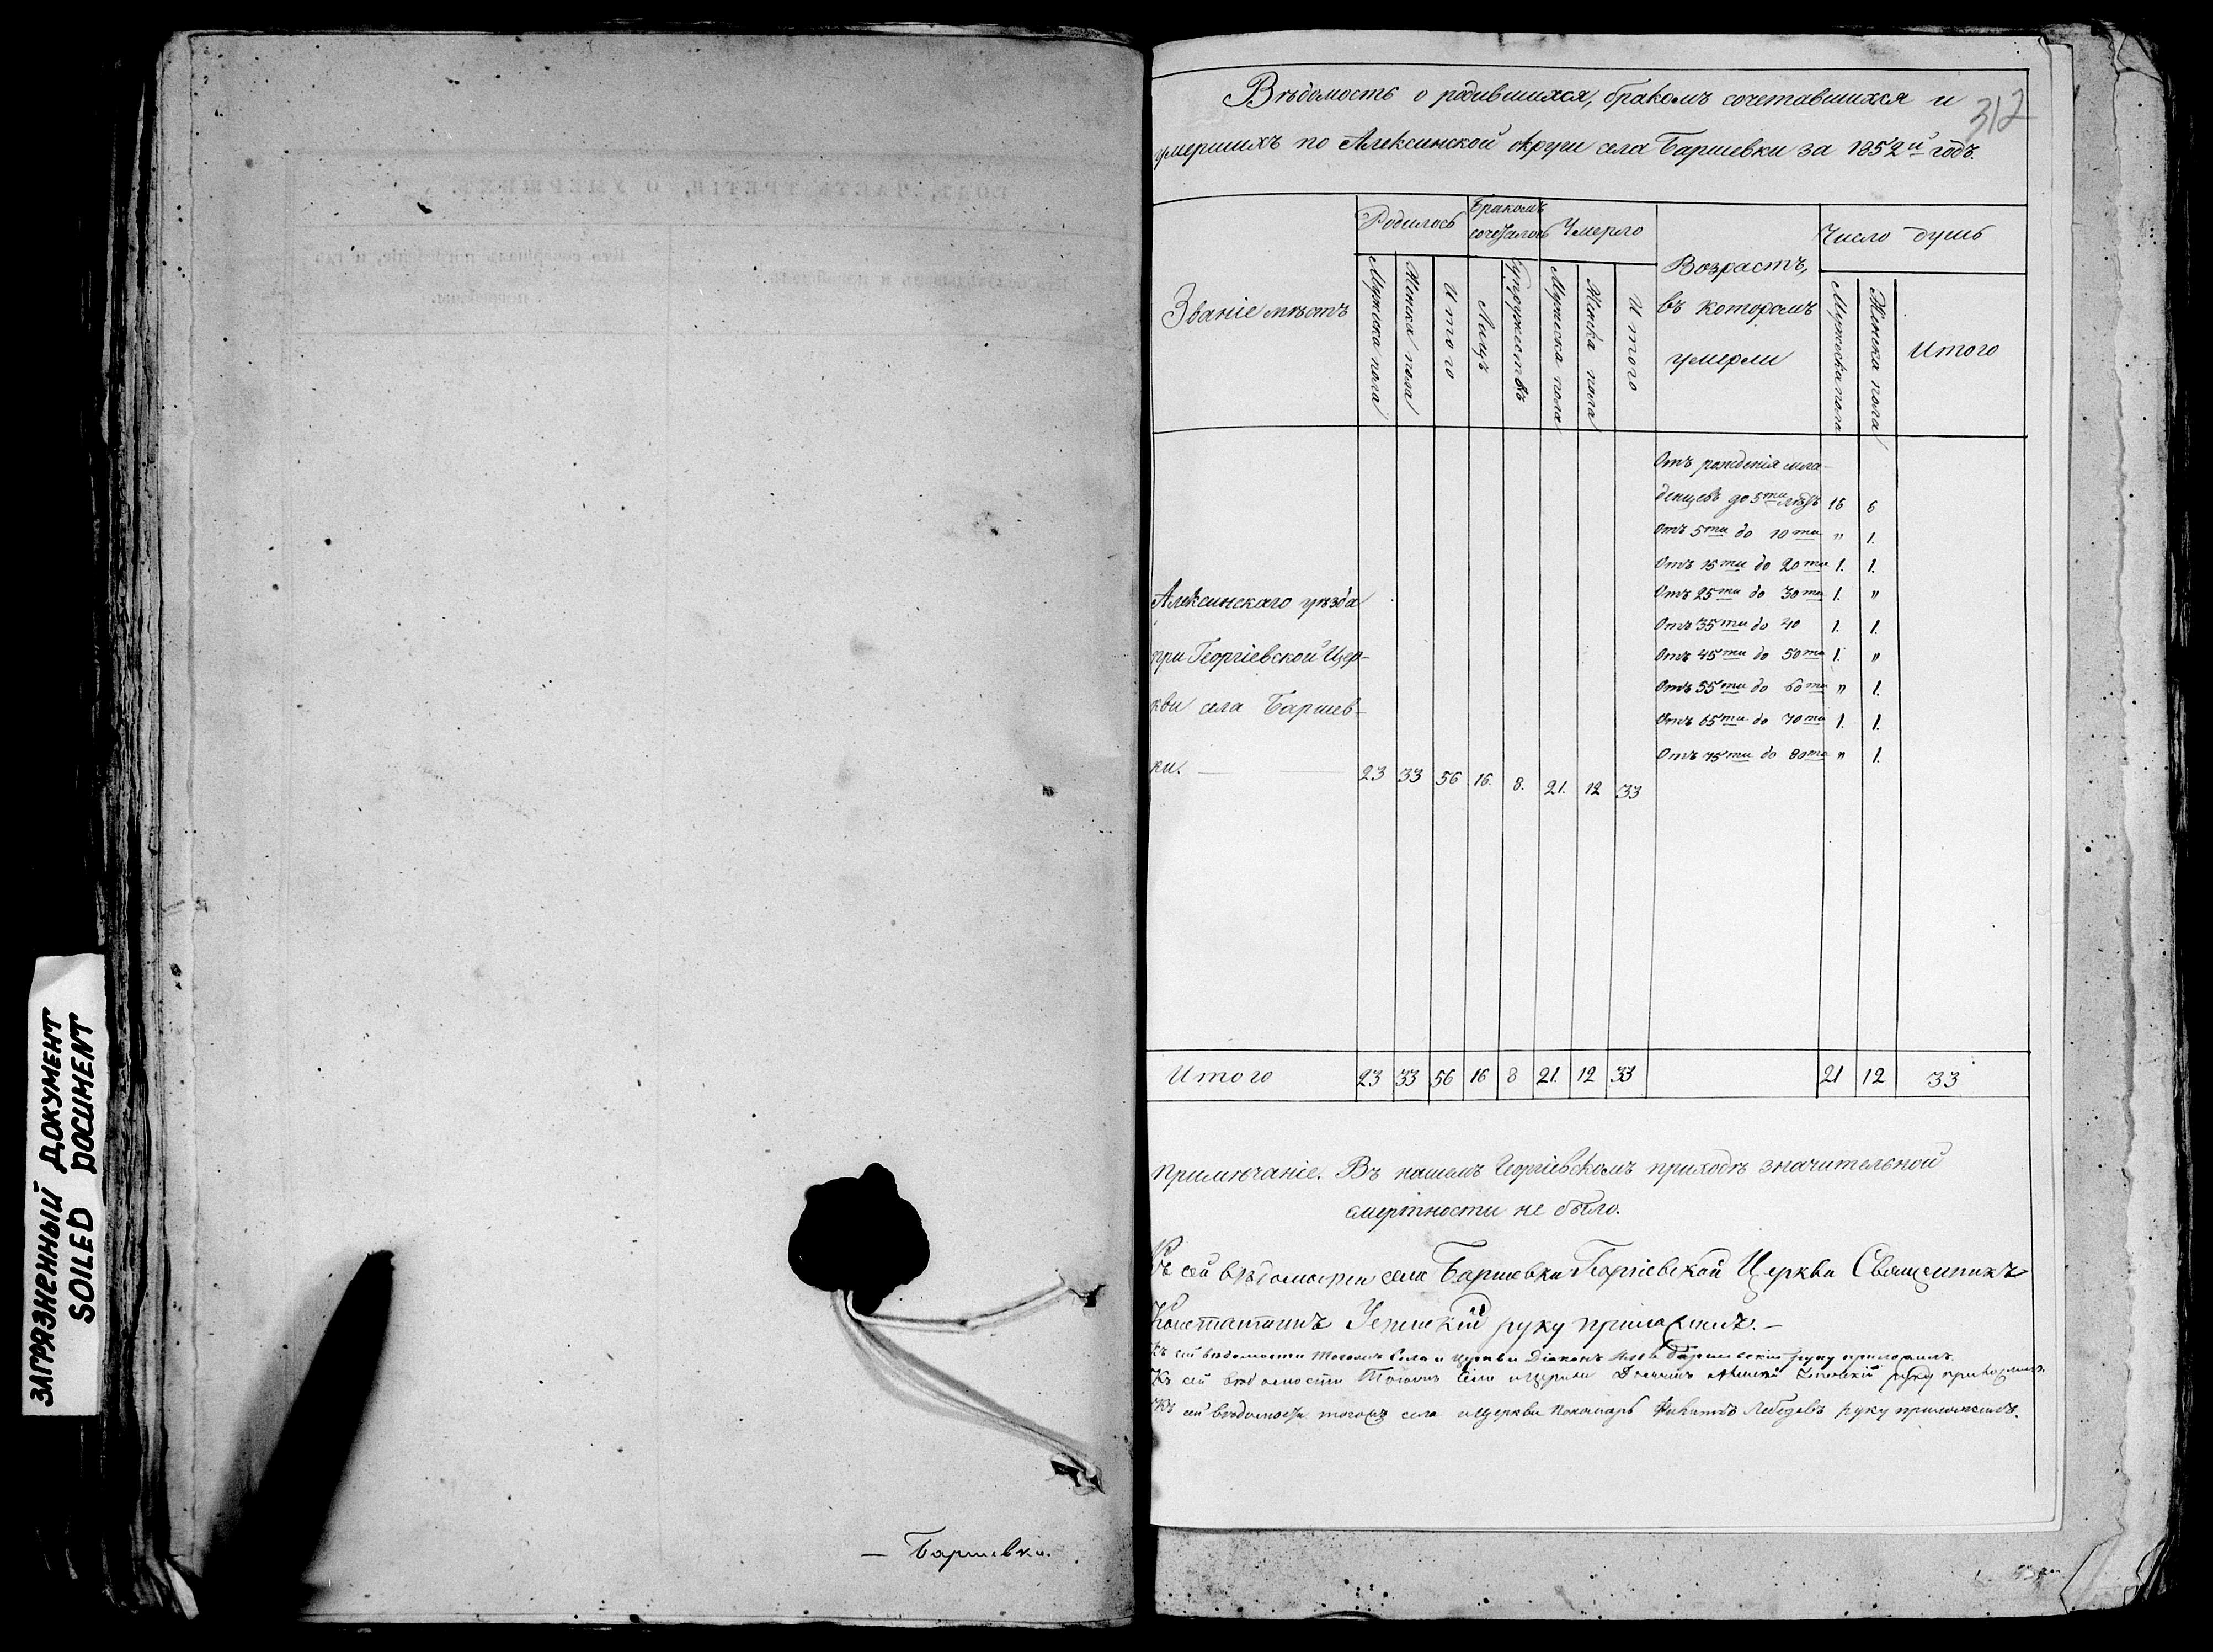 ЗАГРЯЗНЕННЫЙ ДОКУМЕНТ
SOILED DOCUMENT
— Баршевки.
312
Вѣдомость о родившихся, бракомъ сочетавшихся и
умершихъ по Алексинской округи села Баршевки за 1852й годъ.
Званіе мѣстъ
Родилось
Бракомъ сочеталось
Умерло
Возрастъ,
въ которомъ
умерли
Число душъ
Мужеска пола
Женска пола
Итого
Лицъ
Супружествъ
Мужеска пола
Женска пола
Итого
Мужеска пола
Женска пола
Итого
Отъ рожденія мла-
денцевъ до 5ти лѣтъ 16 6
Отъ 5ти до 10ти " 1.
Отъ 15ти до 20ти 1. 1.
Отъ 25ти до 30ти 1. "
Отъ 35ти до 40 1. 1.
Отъ 45ти до 50ти 1. "
Отъ 55ти до 60ти " 1.
Отъ 65ти до 70ти 1. 1.
Отъ 75ти до 80ти " 1.
Алексинскаго уѣзда
при Георгіевской Цер-
кви села Баршев-
ки. — — 23 33 56 16. 8. 21. 12 33
Итого 23 33 56 16 8 21. 12 33 21 12 33
Примѣчаніе. Въ нашемъ Георгіевскомъ приходѣ значительной
смертности не было.
Къ сей вѣдомости села Баршевки Георгіевской Церкви Священникъ
Константинъ руку приложилъ. —
Къ сей вѣдомости тогожъ села и церкви Діаконъ руку приложилъ.
Къ сей вѣдомости тогожъ села и церкви Дьячекъ руку приложилъ.
Къ сей вѣдомости тогожъ села и Церкви Пономарь Лебедевъ руку приложилъ.